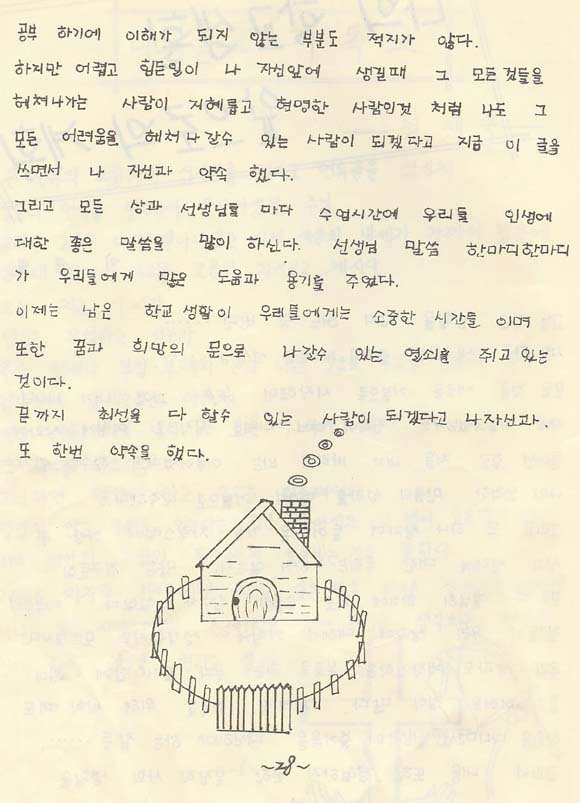 공부 하기에 이해가 되지 않는 부분도 적지가 않다.
하지만 어렵고 힘든일이 나 자신앞에 생길때 그 모든것들을
헤쳐나가는 사람이 지혜롭고 현명한 사람인것 처럼 나도 그
모든 어려움을 헤쳐나갈수 있는 사람이 되겠다고 지금 이 글을
쓰면서 나 자신과 약속 했다.
그리고 모든 상과 선생님들 마다 수업시간에 우리들 인생에
대한 좋은 말씀을 많이 하신다. 선생님 말씀 한마디한마디
가 우리들에게 많은 도움과 용기를 주었다.
이제는 남은 학교생활이 우리들에게는 소중한 시간들 이며
또한 꿈과 희망의 문으로 나갈수 있는 열쇠을 쥐고 있는
것이다.
끝까지 최선을 다 할수 있는 사람이 되겠다고 나자신과
또 한번 약속을 했다.
~28~